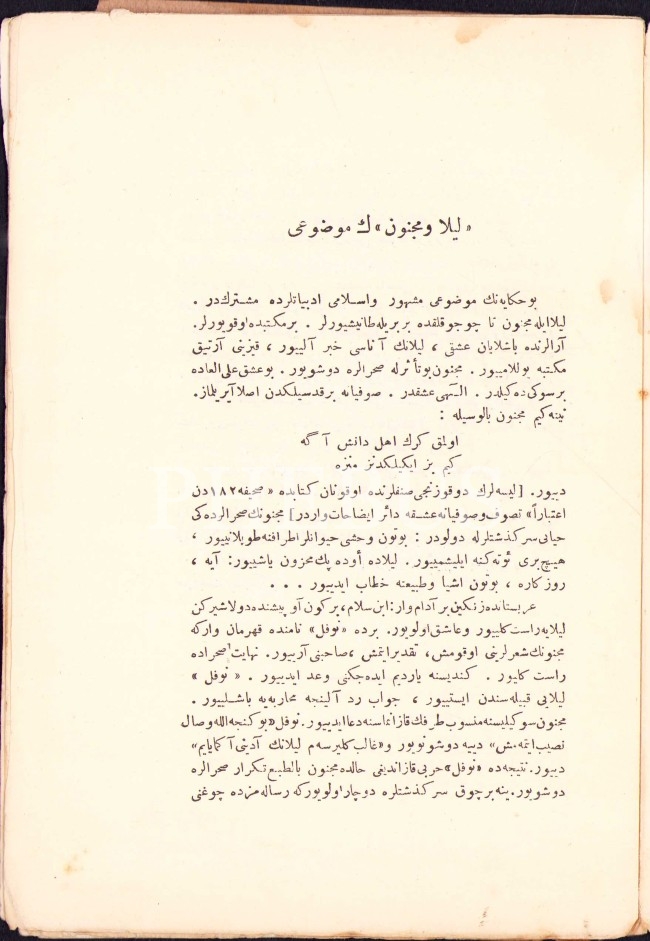 « ليلا و مجنون » ك موضوعى
بو حكايه‌نك موضوعى مشهور و اسلامى ادبياتلرده مشتركدر .
ليلا ايله مجنون تا چوجوقلقده بربريله طانيشيورلر . بر مكتبده اوقويورلر.
آرالرنده باشلايان عشقى ، ليلانك آناسى خبر آلييور ، قيزينى آرتيق
مكتبه يوللامييور . مجنون بو تأثرله صحرالره دوشويور . بو عشق على العاده
بر سوكى ده‌كيلدر . الٓهى عشقدر . صوفيانه بر قدسيلكدن اصلا آيريلماز.
نيته‌كيم مجنون بالوسيله :
اولمق كرك اهل دانش آگه
كيم بز ايكيلكدنز منزه
دييور. [ليسه‌لرك دوقوزنجى صنفلرنده اوقونان كتابده « صحيفه ١٨٢ دن
اعتباراً » تصوف و صوفيانه عشقه دائر ايضاحات واردر] مجنونك صحرالرده‌كى
حياتى سركذشتلرله دولودر : بوتون وحشى حيوانلر اطرافنه طوپلانييور ،
هيچ برى ئوته‌كنه ايليشمييور . ليلاده أوده پك محزون ياشييور: آيه ،
روزكاره ، بوتون اشيا وطبيعته خطاب ايدييور . . .
عربستانده زنكين بر آدام وار: ابن سلام، بر كون آو پيشنده دولاشيركن
ليلايه راست كلييور و عاشق اولويور. برده « نوفل » نامنده قهرمان وار كه
مجنونك شعرلرينى اوقومش، تقدير ايتمش ، صاحبنى آرييور. نهايت صحراده
راست كلييور . كنديسنه يارديم ايده‌جكنى وعد ايدييور . « نوفل »
ليلايى قبيله سندن ايستييور ، جواب رد آلينجه محاربه‌يه باشلييور .
مجنون سوكيليسنه منسوب طرفك قازانماسنه دعا ايدييور. نوفل « بو كنجه الله وصال
نصيب ايتمه‌مش » دييه دوشونويور و « غالب كليرسه‌م ليلانك آديتى آكمايايم »
دييور. نتيجه‌ده « نوفل » حربى قازانديغى حالده مجنون بالطبع تكرار صحرالره
دوشويور. ينه بر چوق سركذشتلره دوچار اولويور كه رساله‌مزده چوغنى